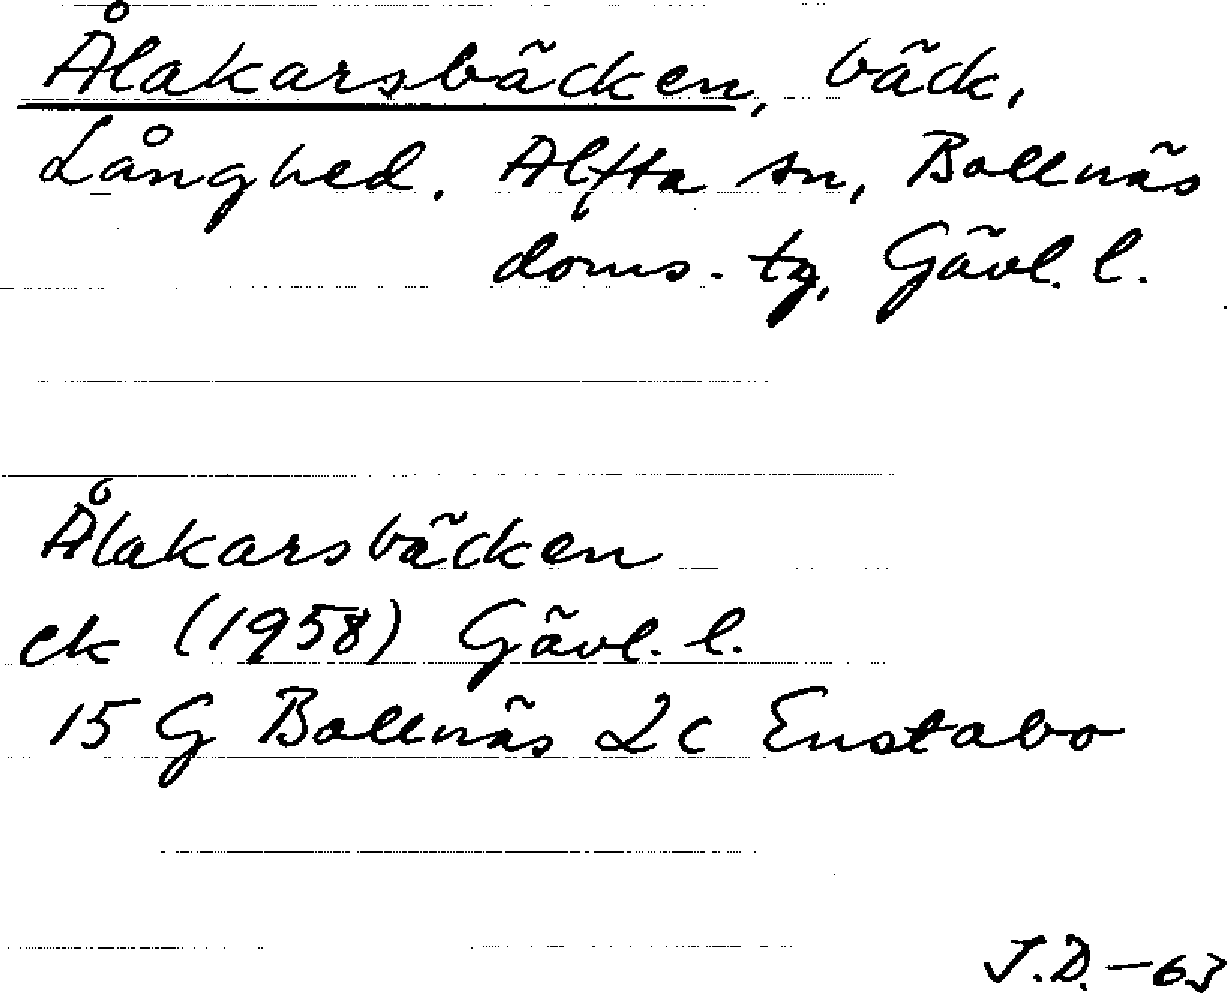 Ålakarsbäcken, bäck,
Långhed. Alfta sn, Bollnäs
doms. tg, Gävl. l.
Ålakarsbäcken
ek (1958) Gävl. l.
15 G Bollnäs 2c Enstabo
J.D. -63